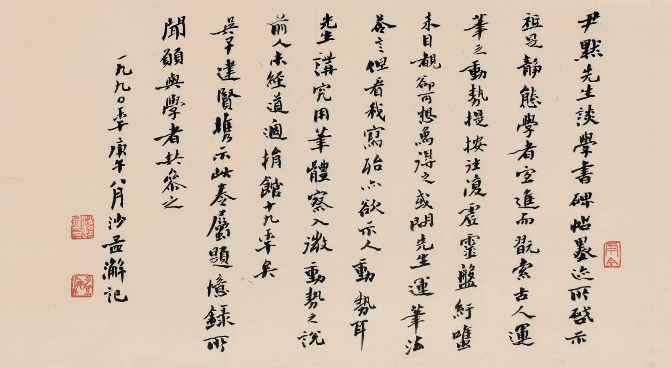 尹默先生談學書碑帖墨迹所啓示
祇是靜態學者宜進而翫索古人運
筆之動勢提按往復虛靈盤紆雖
未目覩卻可想爲得之或問先生運筆法
答言但看我寫殆亦欲示人動勢耳
先生講究用筆體察入微動勢之說
前人未經道適捐館十九年矣
吳子建賢攜示此卷屬題憶錄所
聞願與學者共參之
一九九〇年庚午八月沙孟海記